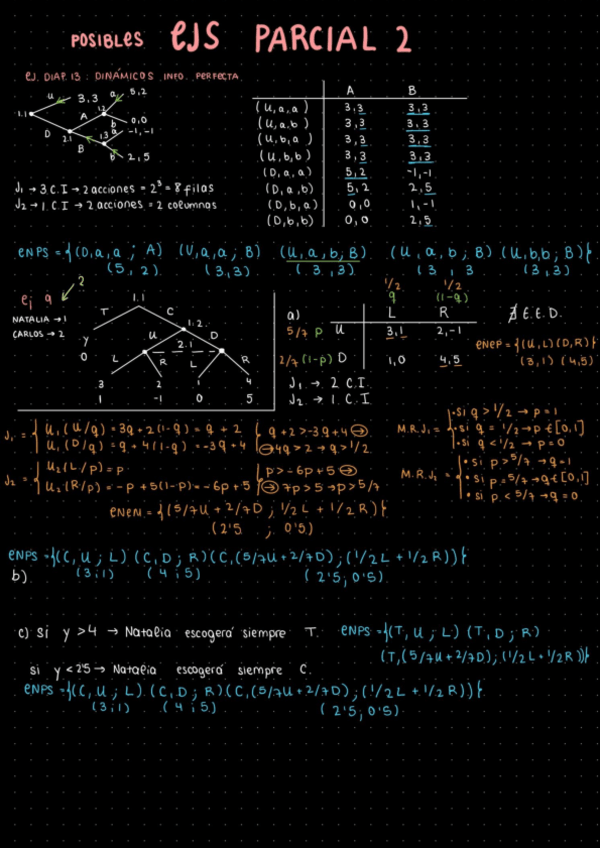 POSIBLES EJS PARCIAL 2
EJ. DIAP. 13 : DINÁMICOS INFO. PERFECTA
1.1 U 3,3 D 2.1 A 1.2 a 5,2 b 0,0 B 1.3 a -1,-1 b 2,5
J1 → 3.C.I → 2 acciones = 2³ = 8 filas
J2 → 1.C.I → 2 acciones = 2 columnas
A B
(U,a,a) 3,3 3,3
(U,a,b) 3,3 3,3
(U,b,a) 3,3 3,3
(U,b,b) 3,3 3,3
(D,a,a) 5,2 -1,-1
(D,a,b) 5,2 2,5
(D,b,a) 0,0 1,-1
(D,b,b) 0,0 2,5
ENPS = {(D,a,a ; A) (U,a,a ; B) (U,a,b,B) (U,a,b ; B) (U,b,b ; B)}
(5,2) (3,3) (3,3) (3,3) (3,3)
ej 9 2
NATALIA → 1
CARLOS → 2
1.1
T C
y 1.2
0 U D
2.1
L R L R
3 2 1 4
1 -1 0 5
a)
1/2 1/2
q (1-q)
L R
5/7 p U 3,1 2,-1
2/7 (1-p) D 1,0 4,5
J1 → 2 C.I.
J2 → 1 C.I
∄ E.E.D.
ENEP = {(U,L)(D,R)}
(3,1) (4,5)
J1 = { U1(U/q) = 3q + 2(1-q) = q + 2
U1(D/q) = q + 4(1-q) = -3q + 4
q+2 > -3q+4 →
→ 4q > 2 → q > 1/2
M.R.J1 = { · si q > 1/2 → p = 1
· si q = 1/2 → p ∈ [0,1]
· si q < 1/2 → p = 0
J2 = { U2(L/p) = p
U2(R/p) = -p + 5(1-p) = -6p + 5
p > -6p + 5 →
→ 7p > 5 → p > 5/7
M.R.J2 = { · si p > 5/7 → q = 1
· si p = 5/7 → q ∈ [0,1]
· si p < 5/7 → q = 0
ENEM = {(5/7U + 2/7D ; 1/2L + 1/2R)}
(2'5 ; 0'5)
ENPS = {(C,U ; L) (C,D ; R)(C,(5/7U+2/7D) ; (1/2L + 1/2R))}
(3;1) (4;5) (2'5; 0'5)
b)
c) Si y > 4 → Natalia escogerá siempre T. ENPS = {(T,U ; L) (T,D ; R)
(T,(5/7U+2/7D) ; (1/2L+1/2R))}
si y < 2'5 → Natalia escogerá siempre C.
ENPS = {(C,U ; L) (C,D ; R)(C,(5/7U+2/7D) ; (1/2L + 1/2R))}
(3;1) (4;5) (2'5; 0'5)